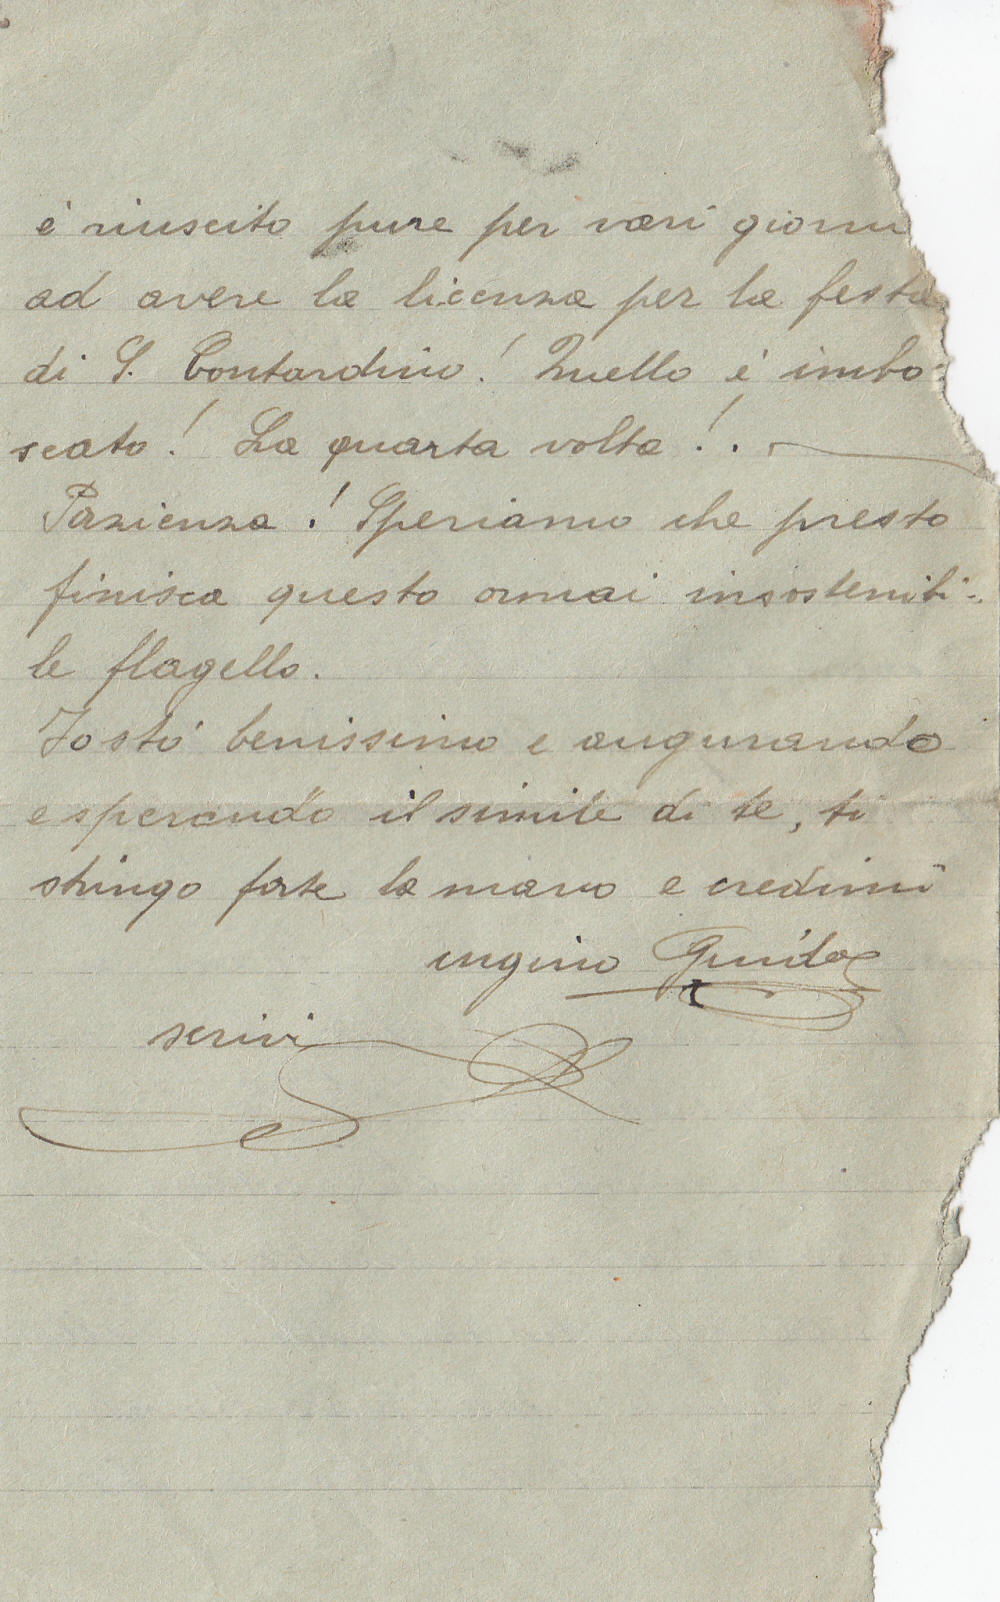 è riuscito pure per vari giorni
ad avere la licenza per la festa
di S. Contardino! Quello è imbo-
scato! La quarta volta!.
Pazienza! Speriamo che presto
finisca questo ormai insostenibi-
le flagello.
Io sto benissimo e augurando
e sperando il simile di te, ti
stringo forte la mano e credimi
cugino Guido
scrivi